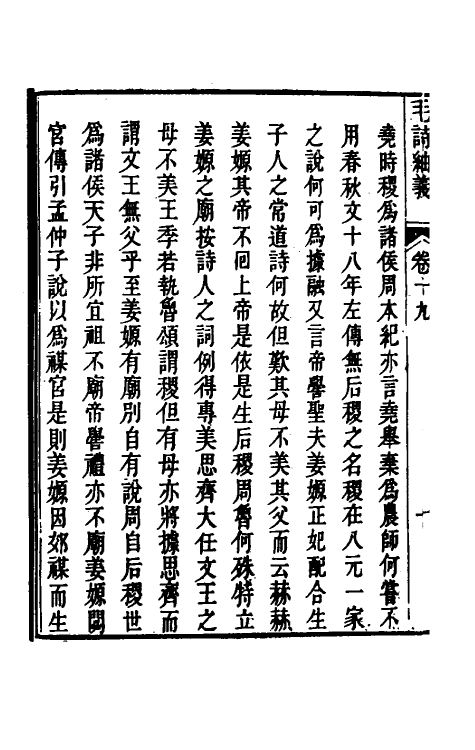 毛詩紬義 卷十九
堯時稷爲諸侯周本紀亦言堯舉棄爲農師何嘗不
用春秋文十八年左傳無后稷之名稷在八元一家
之說何可爲據融又言帝嚳聖夫姜嫄正妃配合生
子人之常道詩何故但歎其母不美其父而云赫赫
姜嫄其帝不回上帝是依是生后稷周魯何殊特立
姜嫄之廟按詩人之詞例得專美思齊大任文王之
母不美王季若執魯頌謂稷但有母亦將據思齊而
謂文王無父乎至姜嫄有廟別自有說周自后稷世
爲諸侯天子非所宜祖不廟帝嚳禮亦不廟姜嫄閟
宮傳引孟仲子說以爲禖宮是則姜嫄因郊禖而生